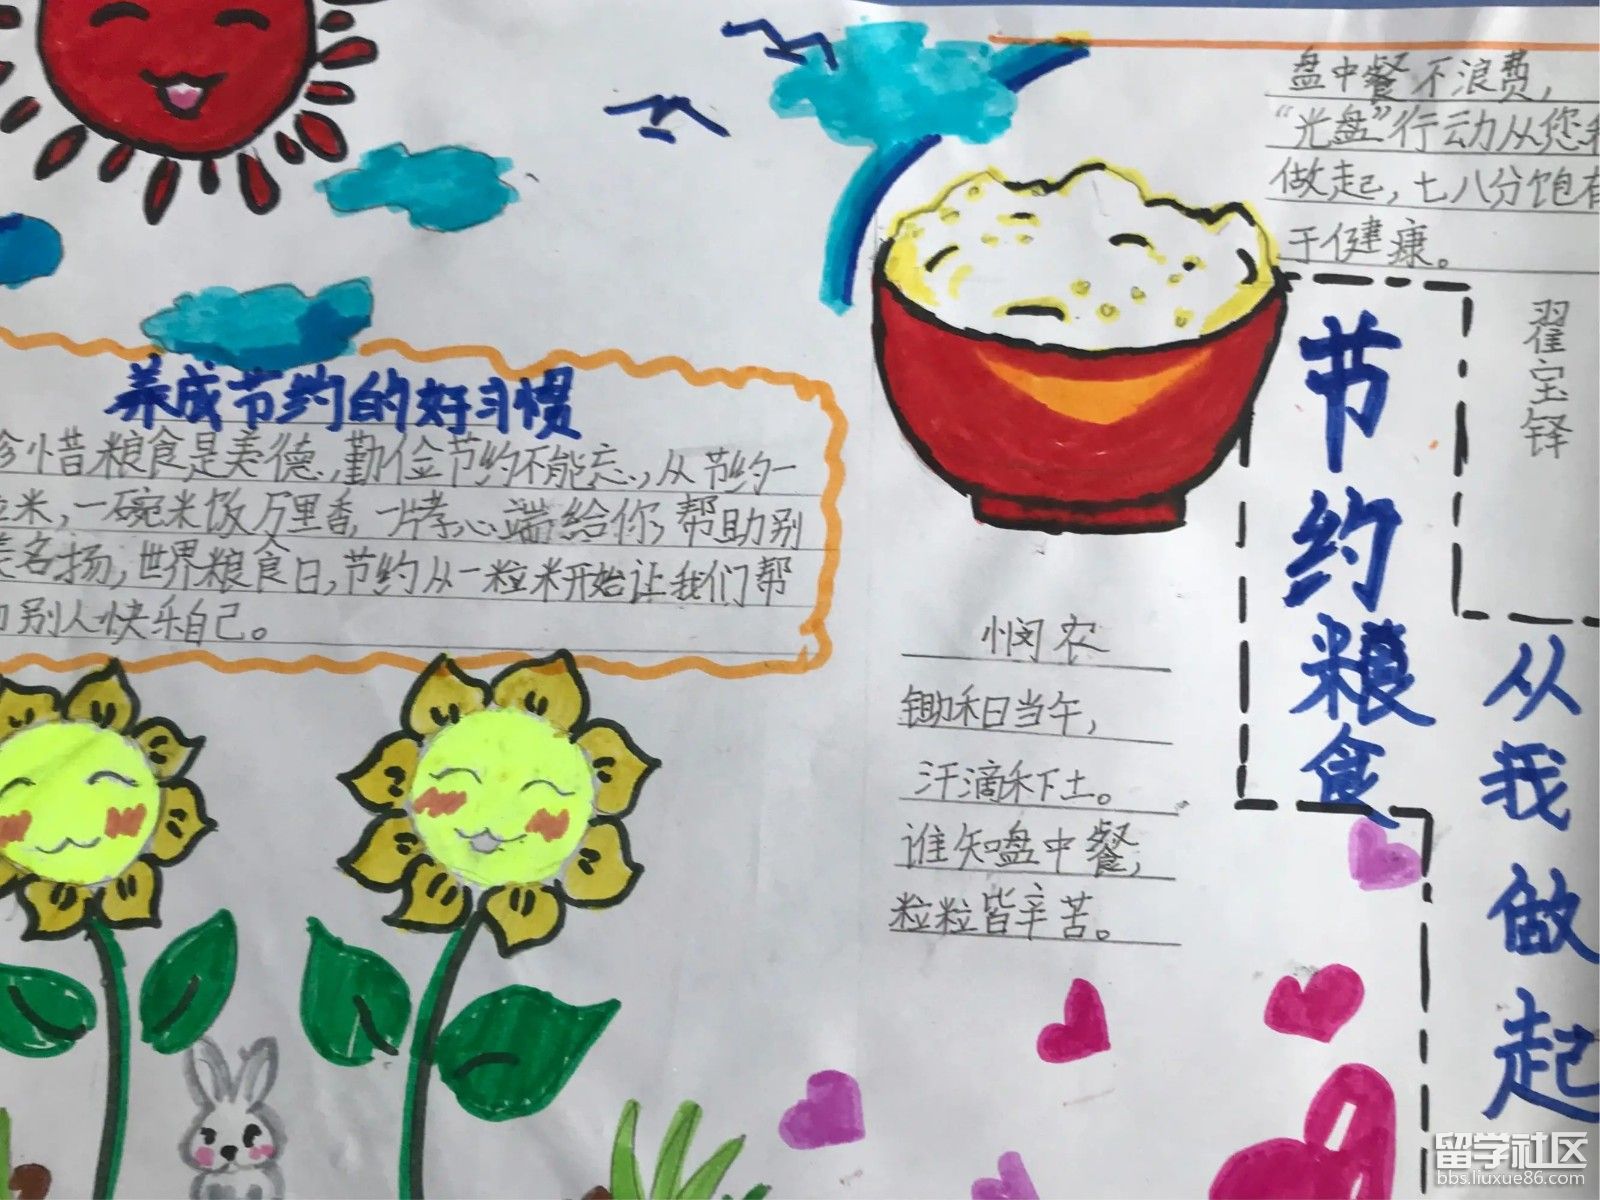 盘中餐不浪费，
“光盘”行动从您和
做起，七八分饱有
于健康。
翟宝铎
节约粮食
从我做起
养成节约的好习惯
珍惜粮食是美德，勤俭节约不能忘，从节约一
粒米，一碗米饭万里香，一片孝心端给你，帮助别
美名扬，世界粮食日，节约从一粒米开始让我们帮
别人快乐自己。
悯农
锄禾日当午，
汗滴禾下土。
谁知盘中餐，
粒粒皆辛苦。
留学社区
bbs.liuxue86.com